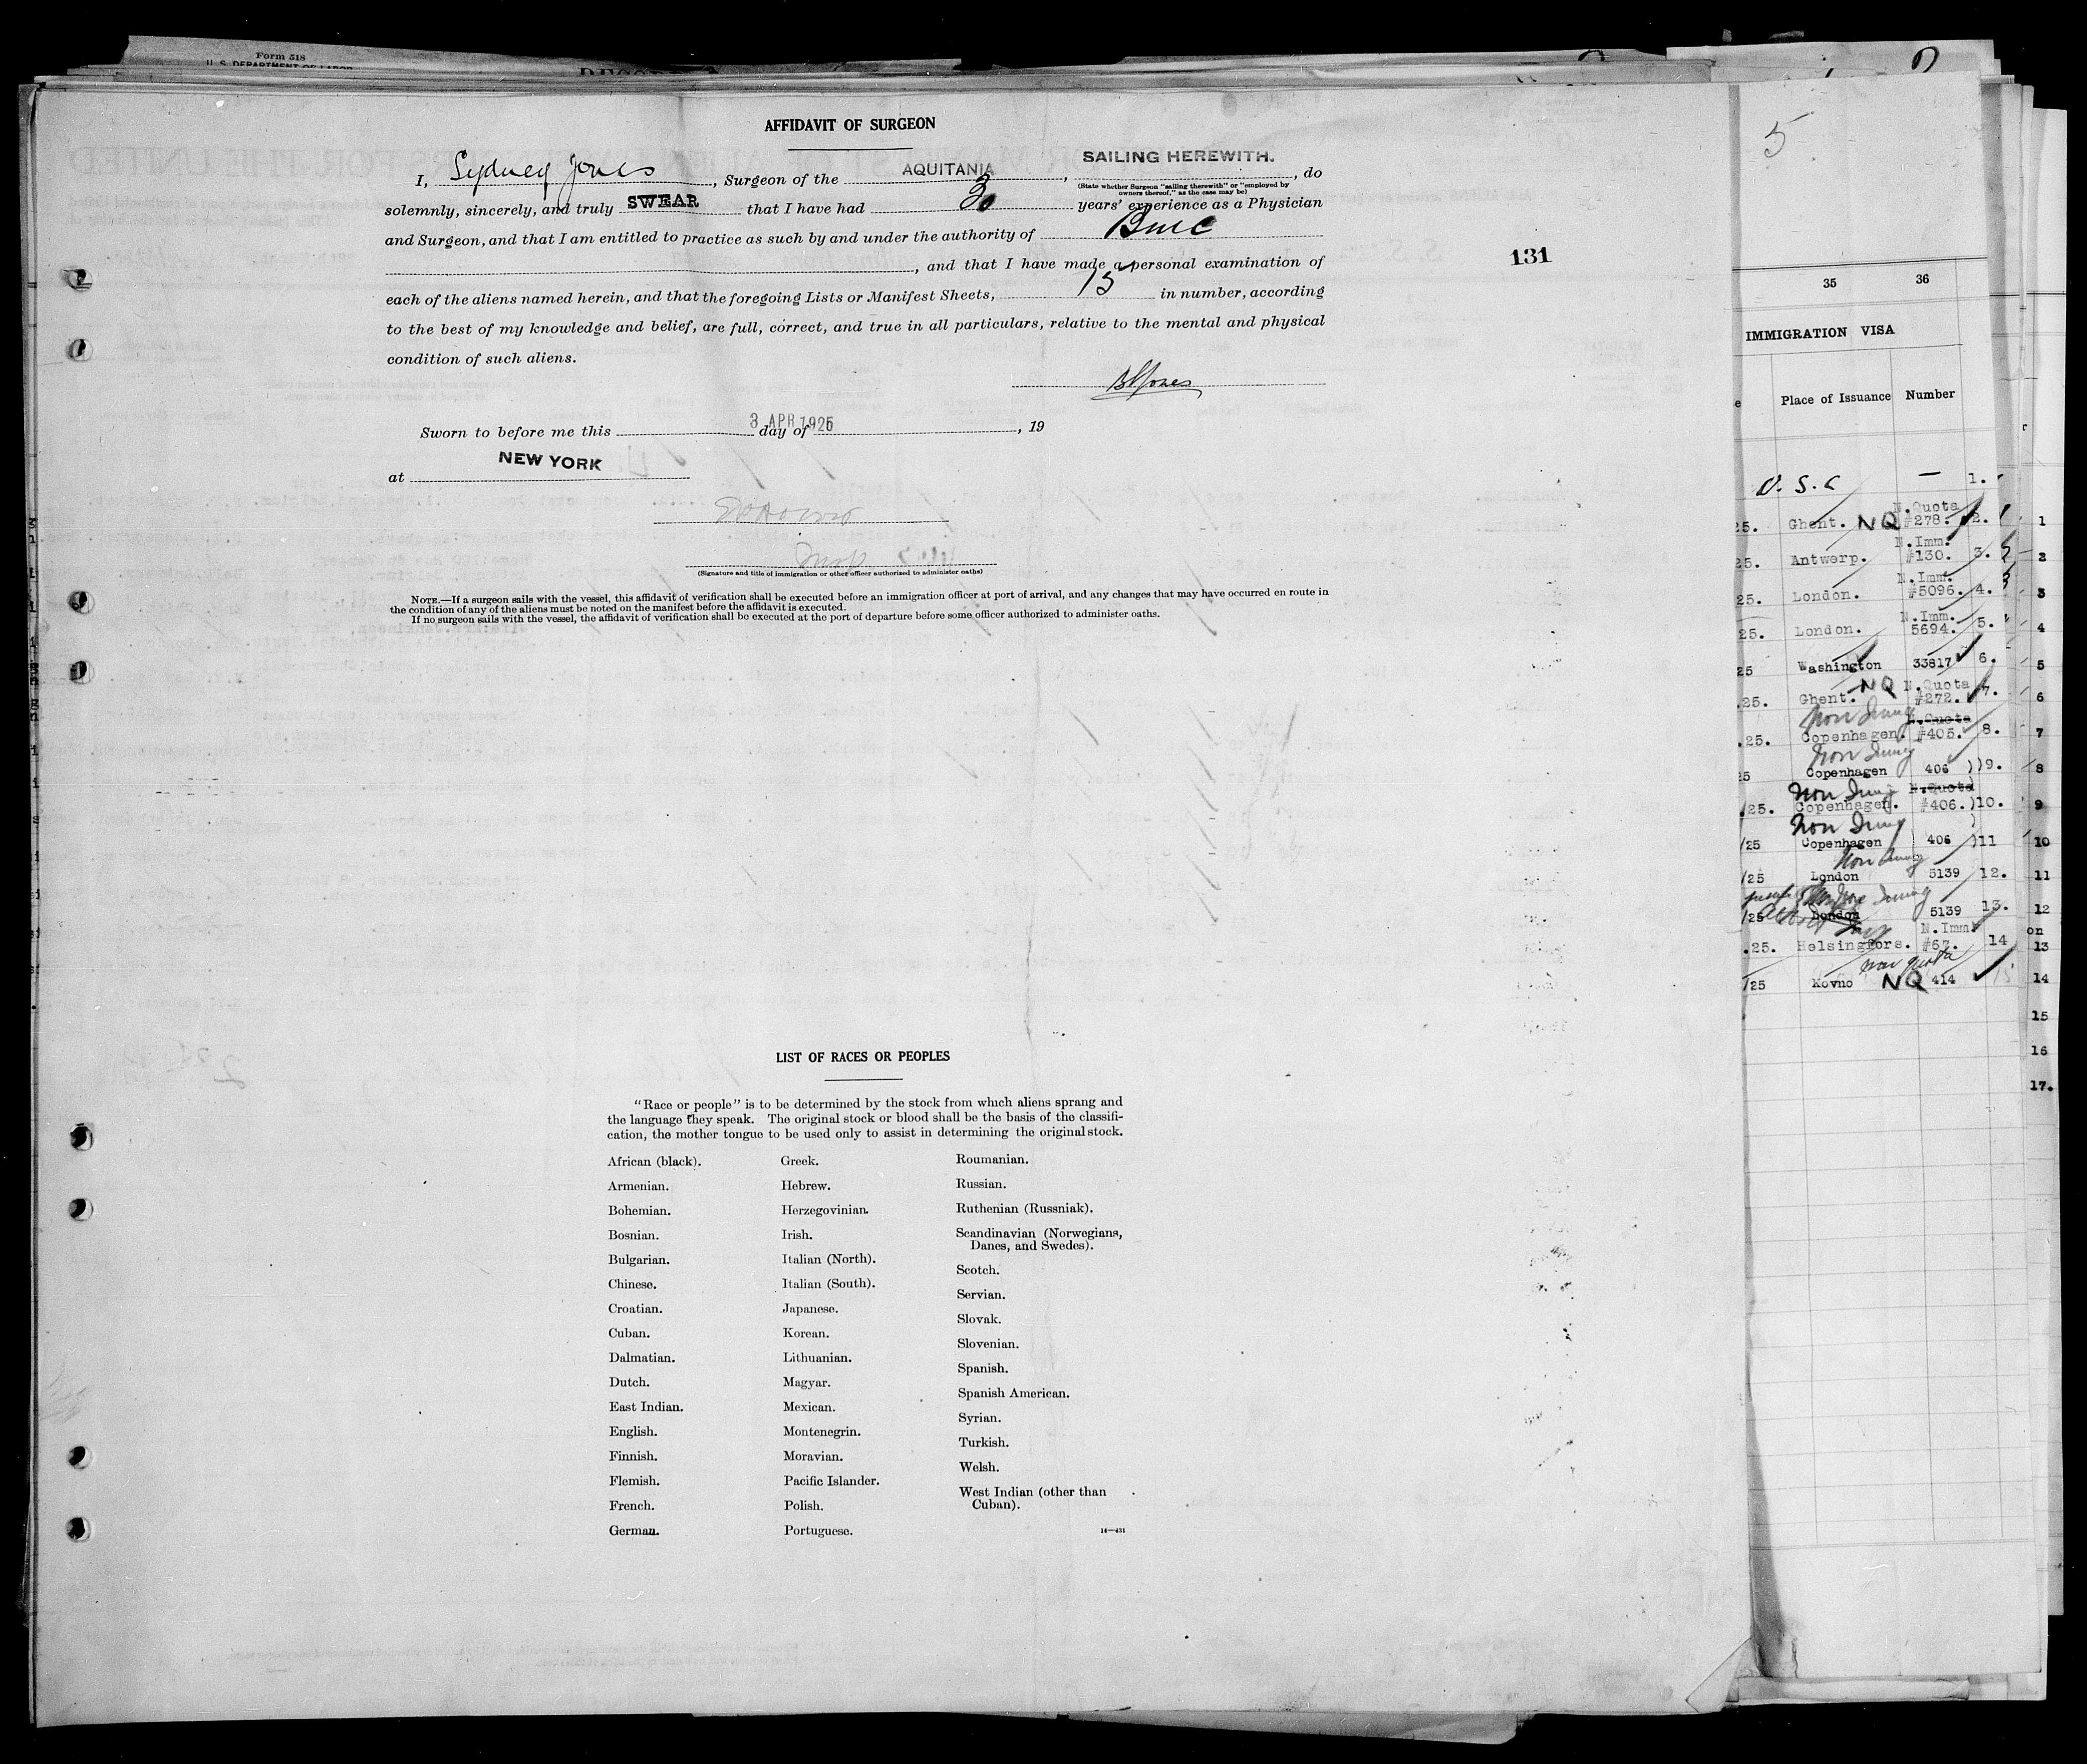 Form 518
U. S. DEPARTMENT OF LABOR
5
AFFIDAVIT OF SURGEON
I, Sydney Jones, Surgeon of the AQUITANIA, SAILING HEREWITH., do
(State whether Surgeon "sailing therewith" or "employed by
owners thereof," as the case may be)
solemnly, sincerely, and truly SWEAR that I have had 30 years' experience as a Physician
and Surgeon, and that I am entitled to practice as such by and under the authority of
, and that I have made a personal examination of
each of the aliens named herein, and that the foregoing Lists or Manifest Sheets, 15 in number, according
to the best of my knowledge and belief, are full, correct, and true in all particulars, relative to the mental and physical
condition of such aliens.
Jones
Sworn to before me this 3 APR 1925 day of , 19
at NEW YORK
(Signature and title of immigration or other officer authorized to administer oaths)
NOTE.—If a surgeon sails with the vessel, this affidavit of verification shall be executed before an immigration officer at port of arrival, and any changes that may have occurred en route in
the condition of any of the aliens must be noted on the manifest before the affidavit is executed.
If no surgeon sails with the vessel, the affidavit of verification shall be executed at the port of departure before some officer authorized to administer oaths.
131
LIST OF RACES OR PEOPLES
"Race or people" is to be determined by the stock from which aliens sprang and
the language they speak. The original stock or blood shall be the basis of the classifi-
cation, the mother tongue to be used only to assist in determining the original stock.
African (black).
Armenian.
Bohemian.
Bosnian.
Bulgarian.
Chinese.
Croatian.
Cuban.
Dalmatian.
Dutch.
East Indian.
English.
Finnish.
Flemish.
French.
German.
Greek.
Hebrew.
Herzegovinian.
Irish.
Italian (North).
Italian (South).
Japanese.
Korean.
Lithuanian.
Magyar.
Mexican.
Montenegrin.
Moravian.
Pacific Islander.
Polish.
Portuguese.
Roumanian.
Russian.
Ruthenian (Russniak).
Scandinavian (Norwegians,
Danes, and Swedes).
Scotch.
Servian.
Slovak.
Slovenian.
Spanish.
Spanish American.
Syrian.
Turkish.
Welsh.
West Indian (other than
Cuban).
16—431
35 36
IMMIGRATION VISA
Place of Issuance Number
U. S. C — 1.
N.Quota
25. Ghent. NQ #278. 2.
N.Imm.
25. Antwerp. #130. 3.
N.Imm.
25. London. #5096. 4.
N.Imm.
25. London. 5694. 5.
25 Washington 33817 6.
NQ N.Quota
.25. Ghent. #272. 7.
Non Immg N.Quota
.25. Copenhagen. #405. 8.
Non Immg
25 Copenhagen 406 ) )9.
Non Immg N.Quota
/25. Copenhagen. #406. )10.
Non Immg
/25 Copenhagen 406 )11
Non Immg
/25 London 5139 12.
/25 London 5139 13.
N.Imm
.25. Helsingfors. #67. 14
non quota
/25 Kovno NQ 414
1
2
3
4
5
6
7
8
9
10
11
12
on
13
14
15
16
17.